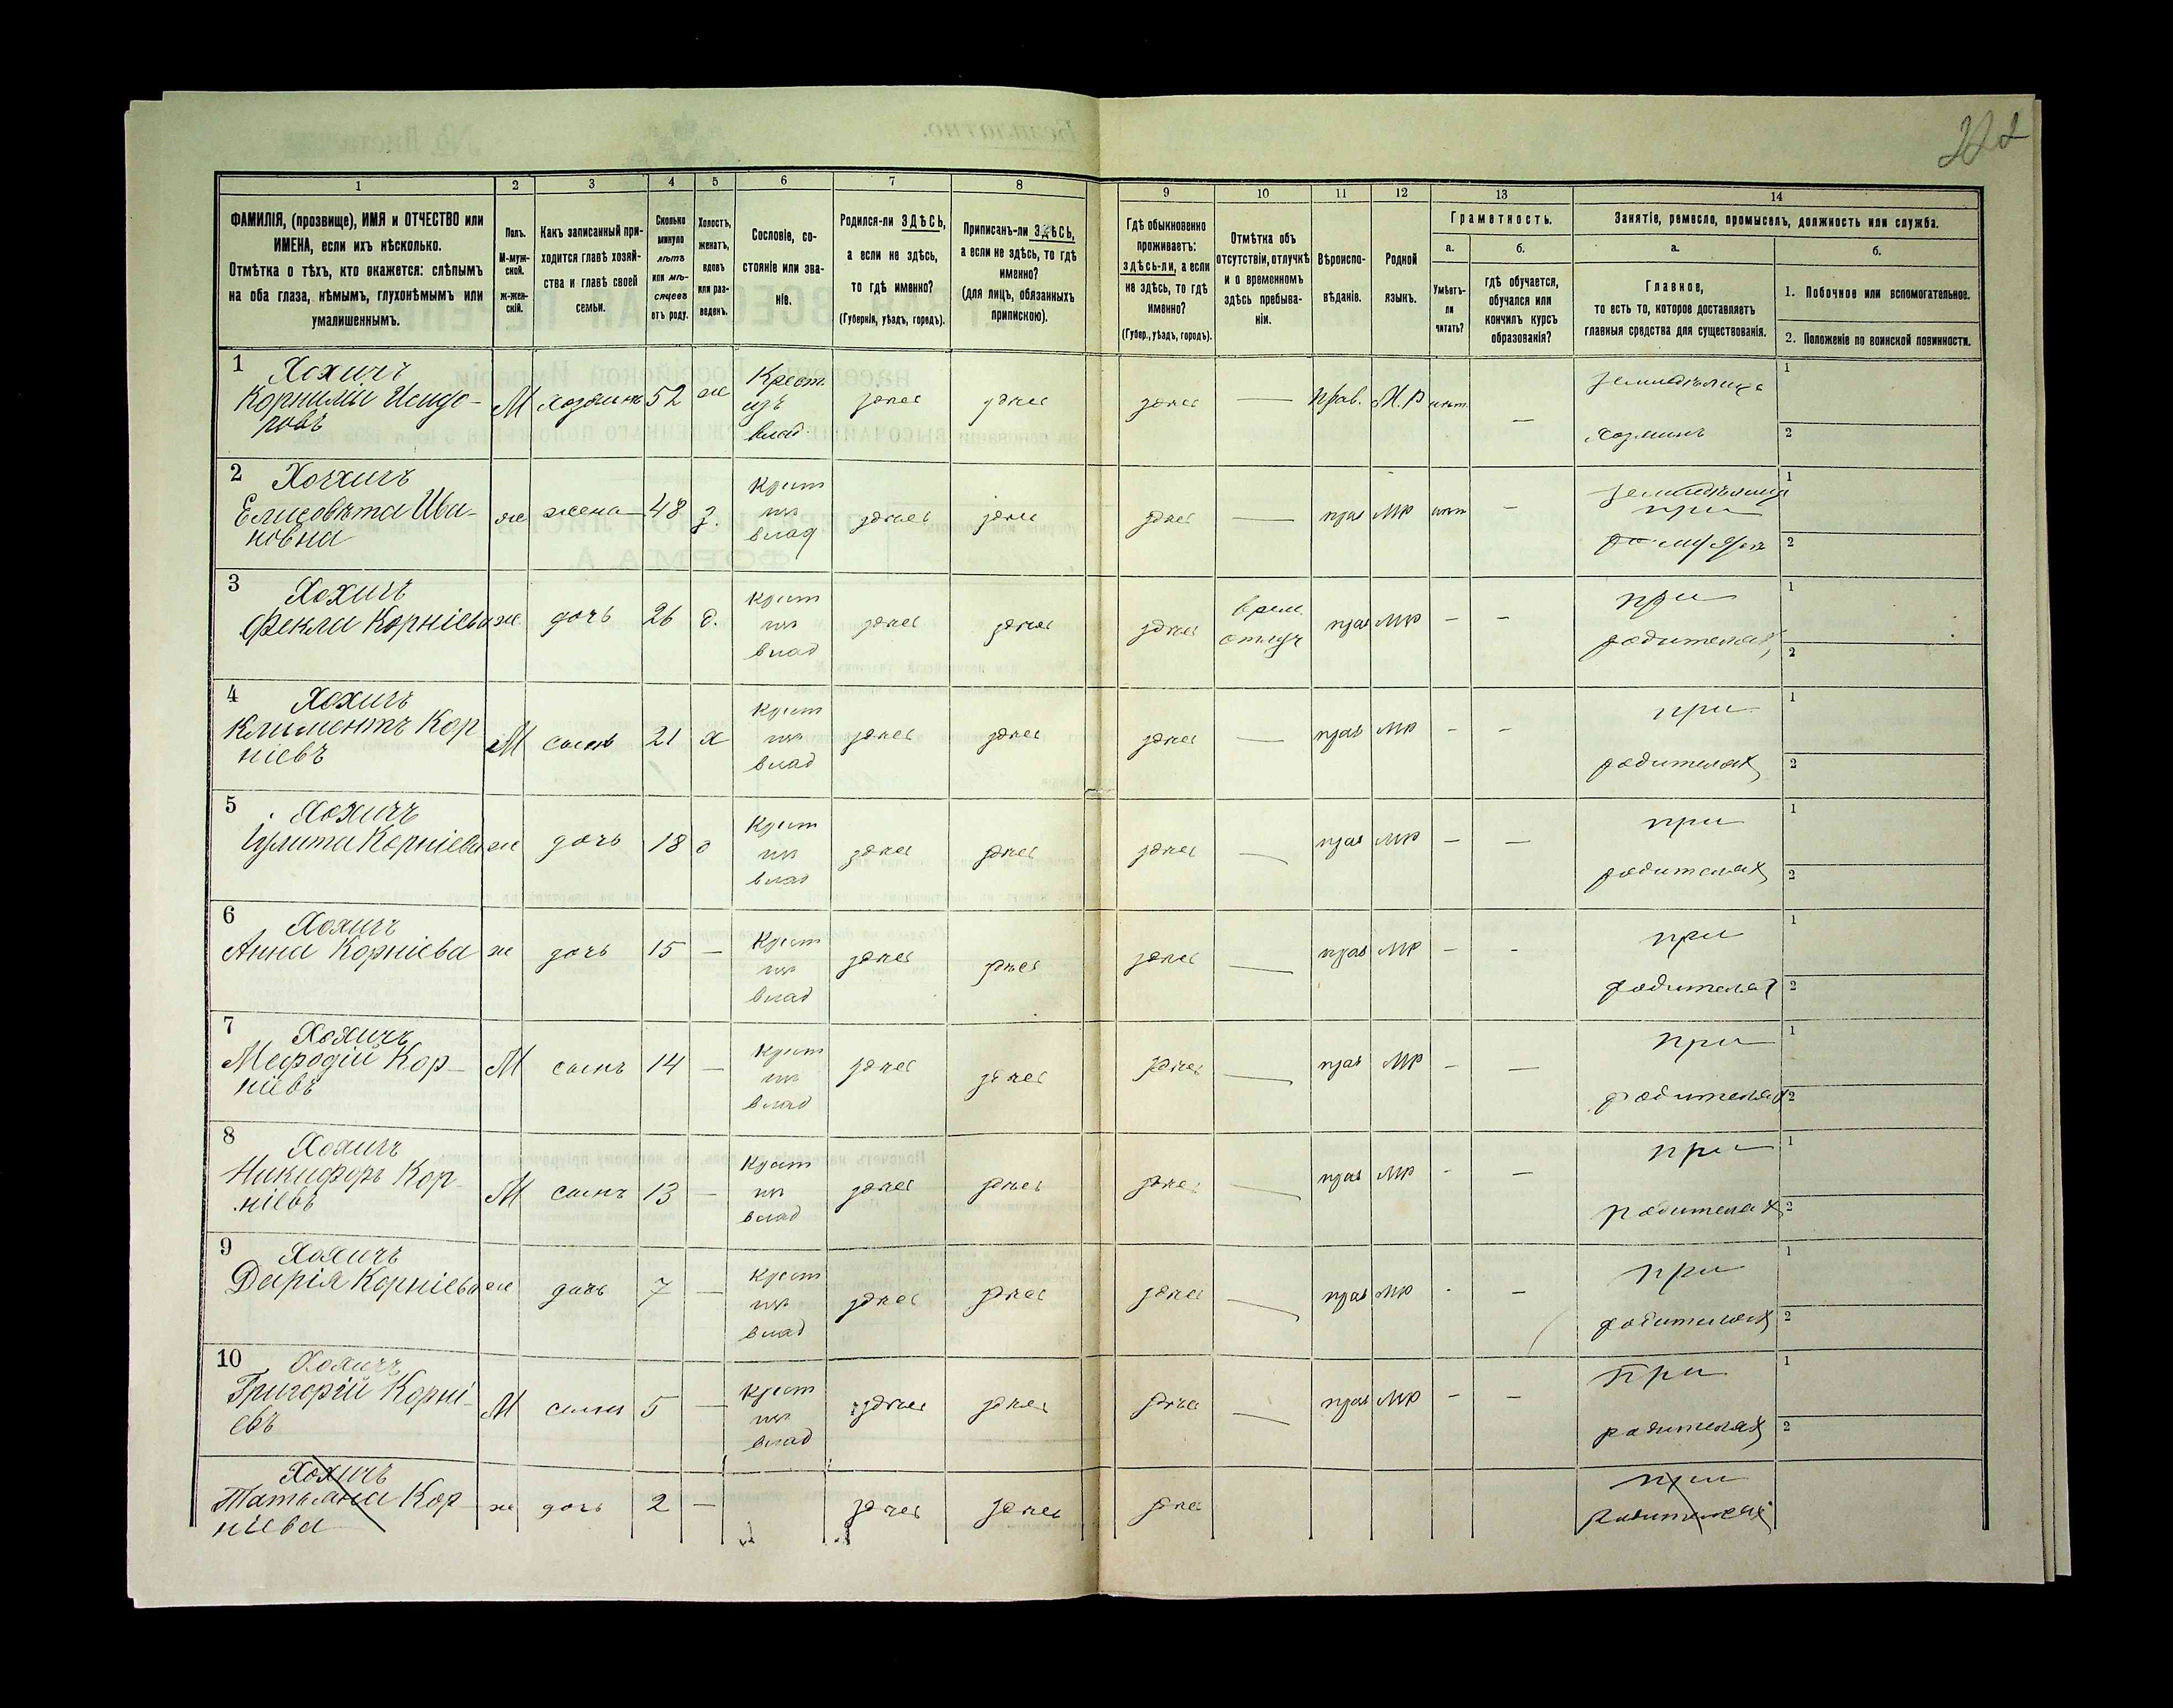 222
1 2 3 4 5 6 7 8 9 10 11 12 13 14
ФАМИЛІЯ, (прозвище), ИМЯ и ОТЧЕСТВО или
ИМЕНА, если ихъ нѣсколько.
Отмѣтка о тѣхъ, кто окажется: слѣпымъ
на оба глаза, нѣмымъ, глухонѣмымъ или
умалишеннымъ.
Полъ.
М-муж-
ской.
ж-жен-
скій.
Какъ записанный при-
ходится главѣ хозяй-
ства и главѣ своей
семьи.
Сколько
минуло
лѣтъ
или мѣ-
сяцевъ
отъ роду.
Холостъ,
женатъ,
вдовъ
или раз-
веденъ.
Сословіе, со-
стояніе или зва-
ніе.
Родился-ли ЗДѢСЬ,
а если не здѣсь,
то гдѣ именно?
(Губернія, уѣздъ, городъ).
Приписанъ-ли ЗДѢСЬ,
а если не здѣсь, то гдѣ
именно?
(для лицъ, обязанныхъ
припискою).
Гдѣ обыкновенно
проживаетъ:
здѣсь-ли, а если
не здѣсь, то гдѣ
именно?
(Губер., уѣздъ, городъ).
Отмѣтка объ
отсутствіи, отлучкѣ
и о временномъ
здѣсь пребыва-
ніи.
Вѣроиспо-
вѣданіе.
Родной
языкъ.
Грамотность.
а.
Умѣетъ-
ли
читать?
б.
гдѣ обучается,
обучался или
кончилъ курсъ
образованія?
Занятіе, ремесло, промыселъ, должность или служба.
а.
Главное,
то есть то, которое доставляетъ
главныя средства для существованія.
б.
1. Побочное или вспомогательное.
2. Положеніе по воинской повинности.
1 Хохичъ
Корнилій Исидо-
ровъ
М хозяинъ 52 ж
Крест.
изъ
влад.
здѣсь здѣсь здѣсь — Прав. М.Р нѣт. —
земледѣлецъ
хозяинъ
1
2
2 Хохичъ
Елисовѣта Ива-
новна
ж жена 48 з.
Крест
из
влад
здѣсь здѣсь здѣсь — прав МР нѣт -
при
1
2
3 Хохичъ
Фекли Корніева
ж. дочь 26 д.
Крест
из
влад
здѣсь здѣсь здѣсь
врем.
отлуч
прав МР - -
при
родителях
1
2
4 Хохичъ
Климентъ Кор
ніевъ
М сынъ 21 х
Крест
из
влад
здѣсь здѣсь здѣсь — прав МР - -
при
родителях
1
2
5 Хохичъ
Іулита Корніева
ж дочь 18 д
Крест
из
влад
здѣсь здѣсь здѣсь — прав МР - —
при
родителях
1
2
6 Хохичъ
Анна Корніева
ж дочь 15 —
Крест
из
влад
здѣсь здѣсь здѣсь — прав МР - -
при
родителях
1
2
7 Хохичъ
Мефодій Кор-
ніевъ
М сынъ 14 —
Крест
из
влад
здѣсь здѣсь здѣсь — прав МР - —
при
родителях
1
2
8 Хохичъ
Никифоръ Кор-
ніевъ
М сынъ 13 —
Крест
из
влад
здѣсь здѣсь здѣсь — прав МР - —
при
родителях
1
2
9 Хохичъ
Дарія Корніева
ж дочь 7 —
Крест
из
влад
здѣсь здѣсь здѣсь — прав МР - —
при
родителях
1
2
10 Хохичъ
Григорій Корні-
евъ
М сынъ 5 —
Крест
из
влад
здѣсь здѣсь здѣсь — прав МР - —
При
родителях
1
2
Хохичъ
Татьяна Кор-
ніева
ж дочь 2 —
здѣсь здѣсь здѣсь
при
родителях